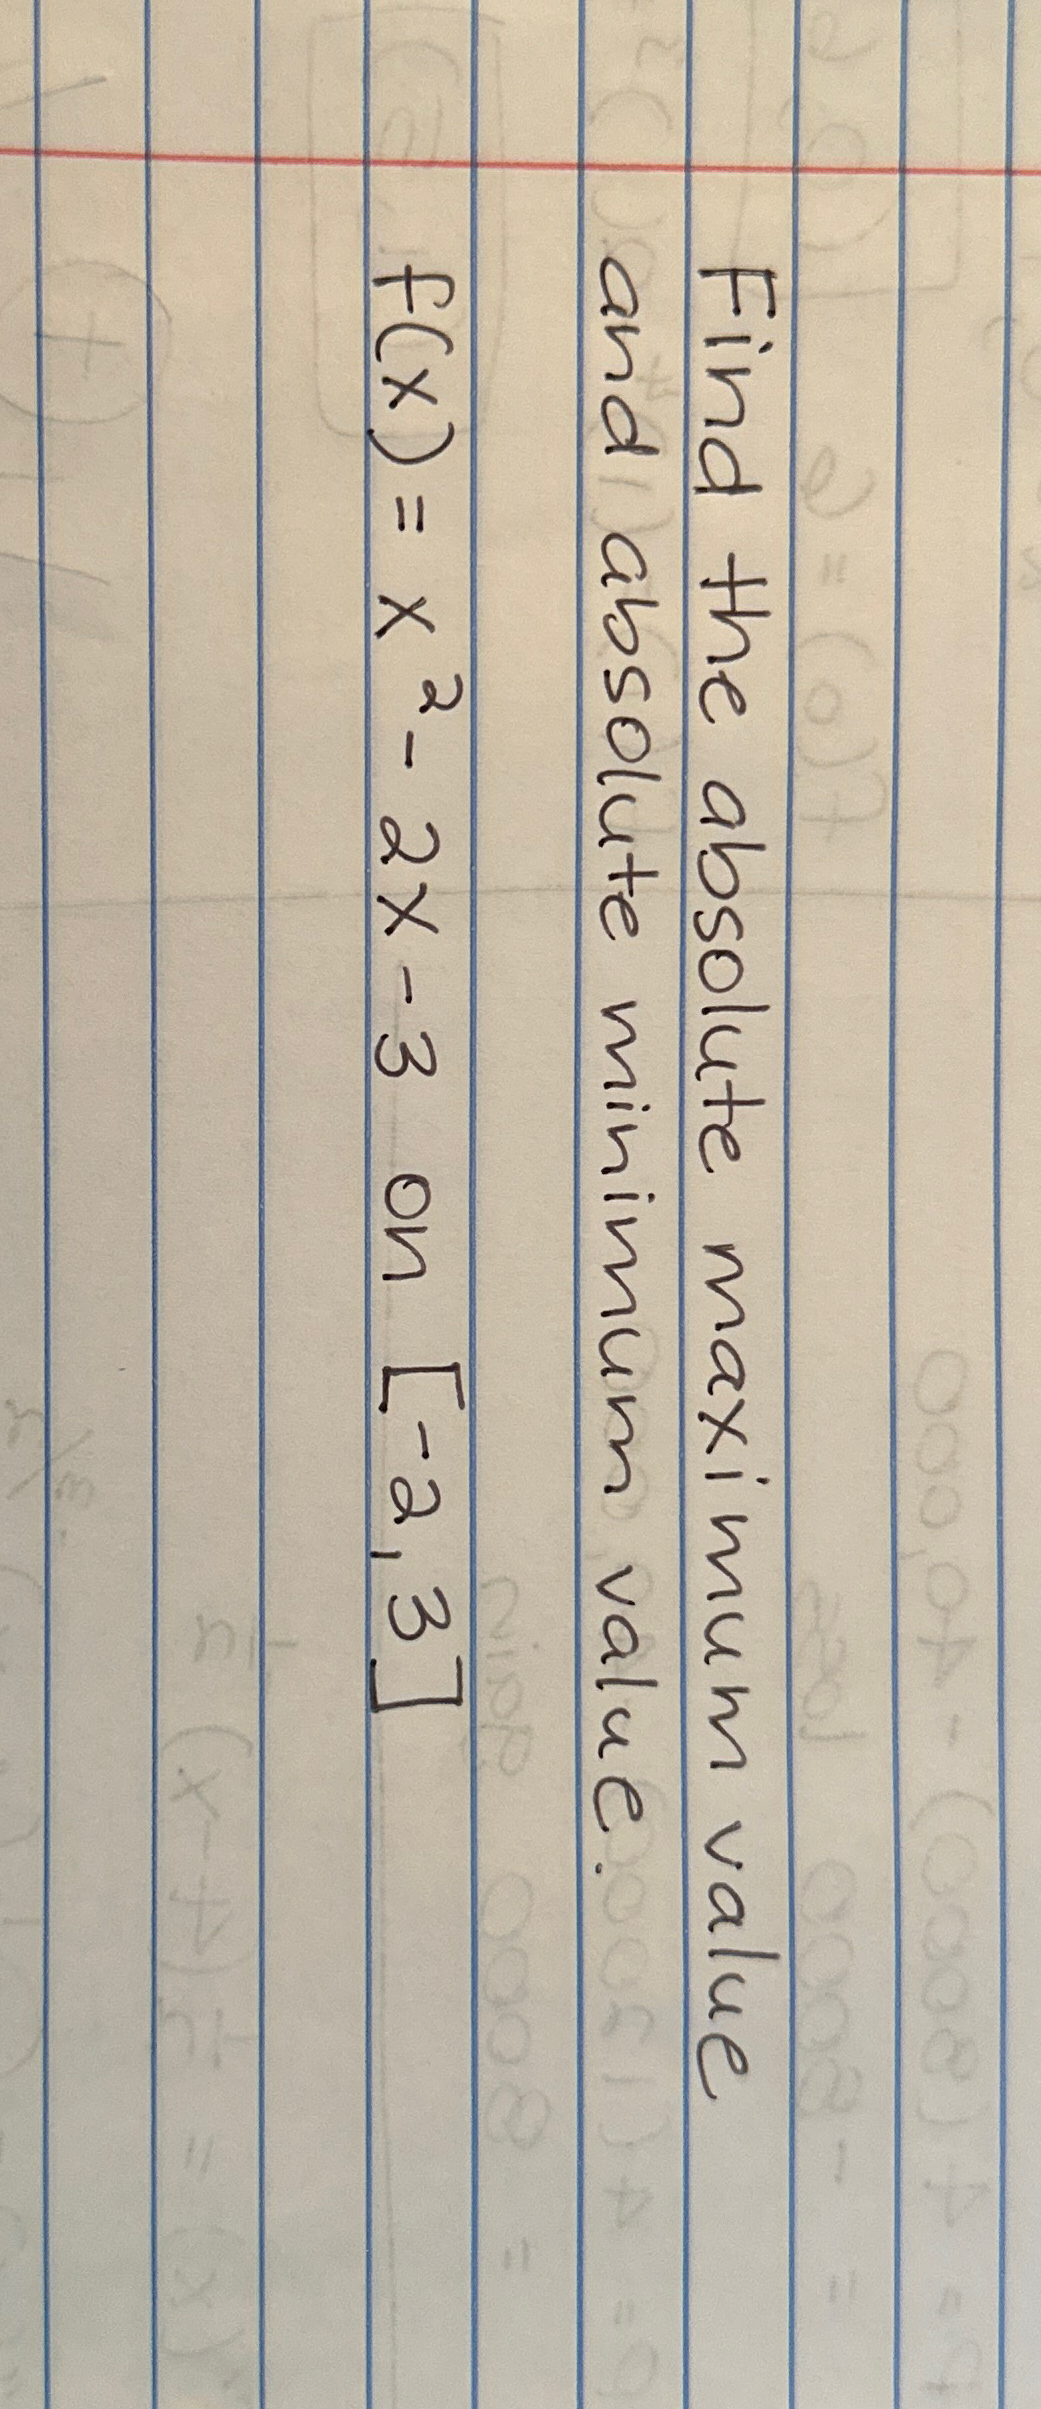 Find the absolute maximum value
and absolute minimum value.
f(x) = x² - 2x - 3 on [-2, 3]